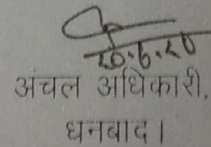 26.6.20
अंचल अधिकारी,
धनबाद।